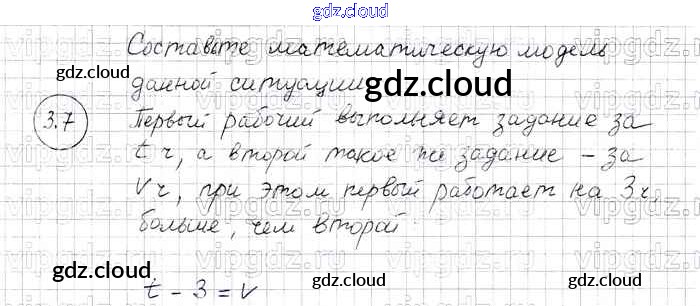 gdz.cloud
Составьте математическую модель
данной ситуации
gdz.cloud
gdz.cloud
3.7
Первый рабочий выполняет задание за
t ч, а второй такое же задание – за
V ч, при этом первый работает на 3 ч,
больше, чем второй
gdz.cloud
gdz.cloud
gdz.cloud
t - 3 = V